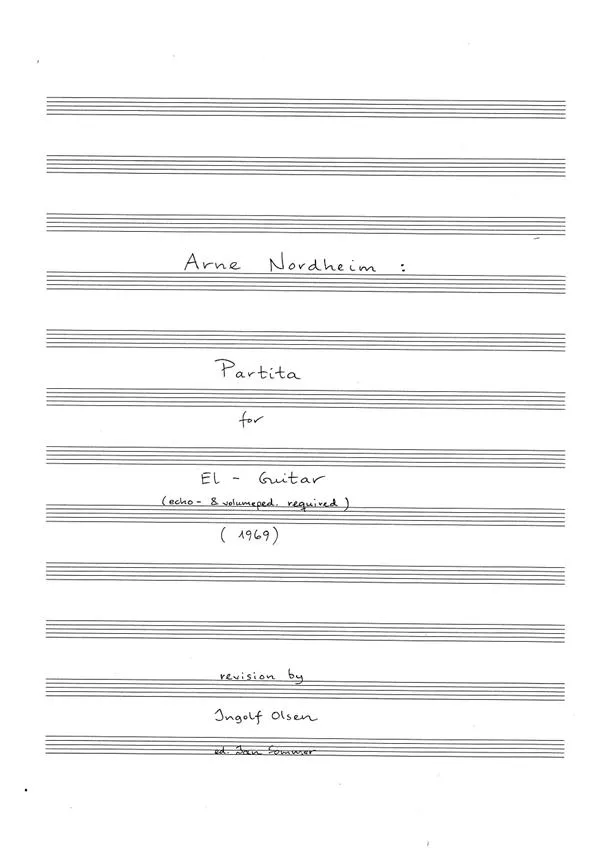 Arne Nordheim :
Partita
for
El - Guitar
(echo- & volumeped. required)
(1969)
revision by
Ingolf Olsen
ed. Jan Sommer